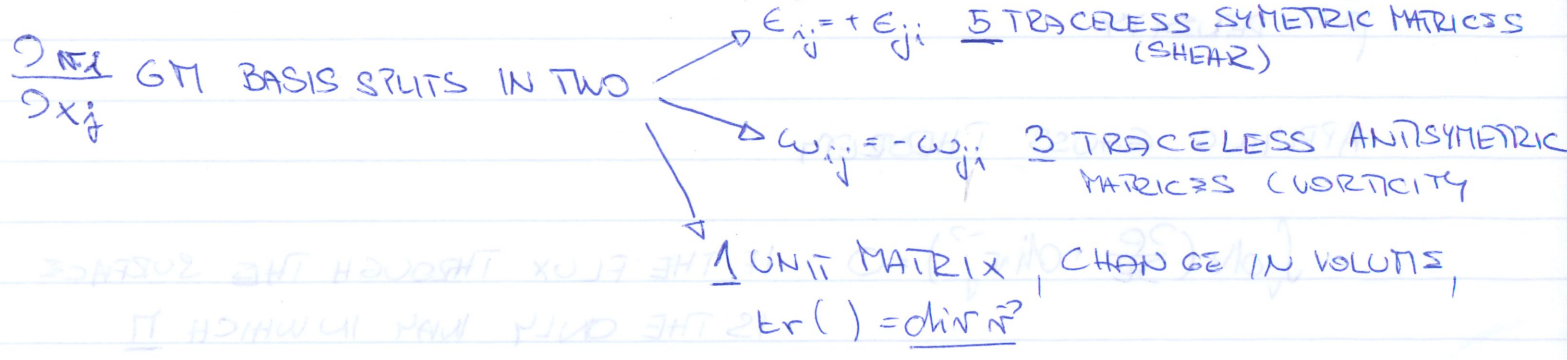 ∂vi/∂xj GM BASIS SPLITS IN TWO
ϵij = + ϵji 5 TRACELESS SYMETRIC MATRICES
(SHEAR)
ωij = - ωji 3 TRACELESS ANTISYMETRIC
MATRICES (VORTICITY
1 UNIT MATRIX, CHANGE IN VOLUME,
tr( ) = div v⃗